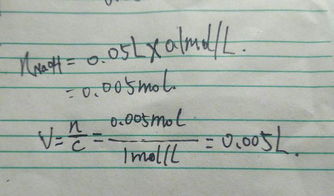 n NaOH = 0.05L × 0.1mol/L.
= 0.005mol.
V = n/c = 0.005mol / 1mol/L = 0.005L.